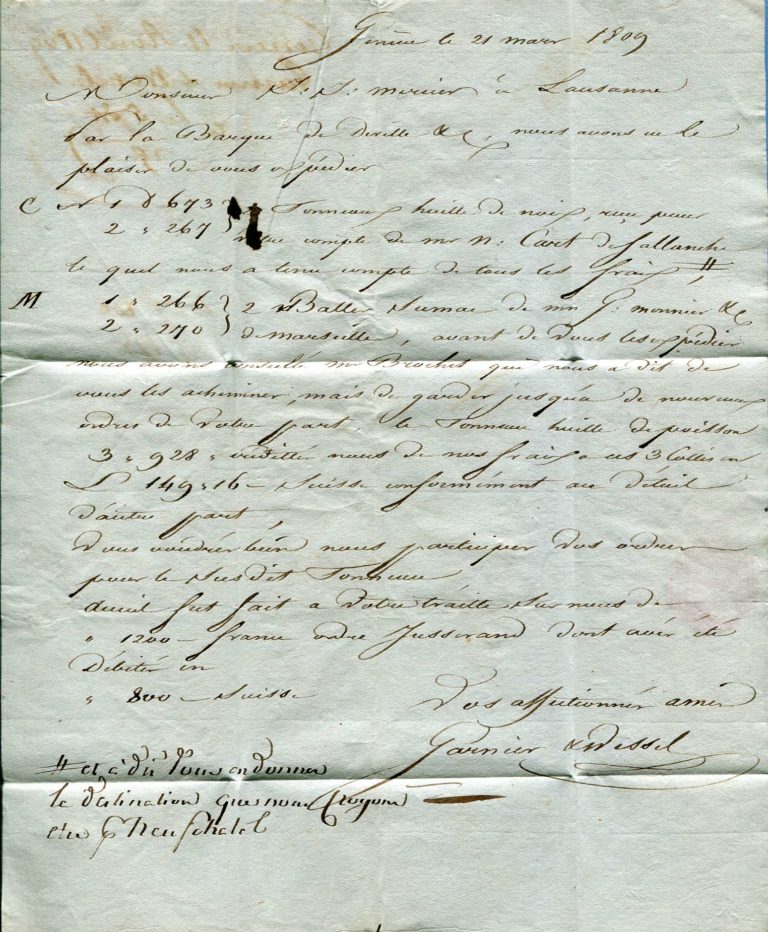 Genève le 21 mars 1809
Monsieur J: J: mercier à Lausanne
Par la Barque de Deville &c, nous avons eu le
plaisir de vous expédier
C N 1 P 673 } Tonneaux huille de noix, reçu pour
2 " 267 } compte de mr n: Cart de Sallanche
le quel nous a tenu compte de tous les fraix #,
M 1 " 266 } 2 Balles Sumac de mrs G: monnier &c
2 " 270 } de marseille, avant de vous les expédier
nous avons consulté mr Broches qui nous a dit de
vous les acheminer, mais de garder jusqua de nouveaux
ordres de Votre part, le Tonneau huille de poisson
3 " 928 " nous de nos fraix a ces 3 Collis en
L 149 " 16 - Suisse conformément au détail
d'autre part,
Vous voudrés bien nous participer Vos ordres
pour le Susdit Tonneau,
acueil fut fait a Votre traitte Sur nous de
" 1200 - francs ordre Jusserand dont avés été
Débités en
" 800 - Suisse
Vos affectionnés amis
Garnier & Dessel
# et à dit Vous en donner
la destination que nous Croyons
etre p Neufchatel